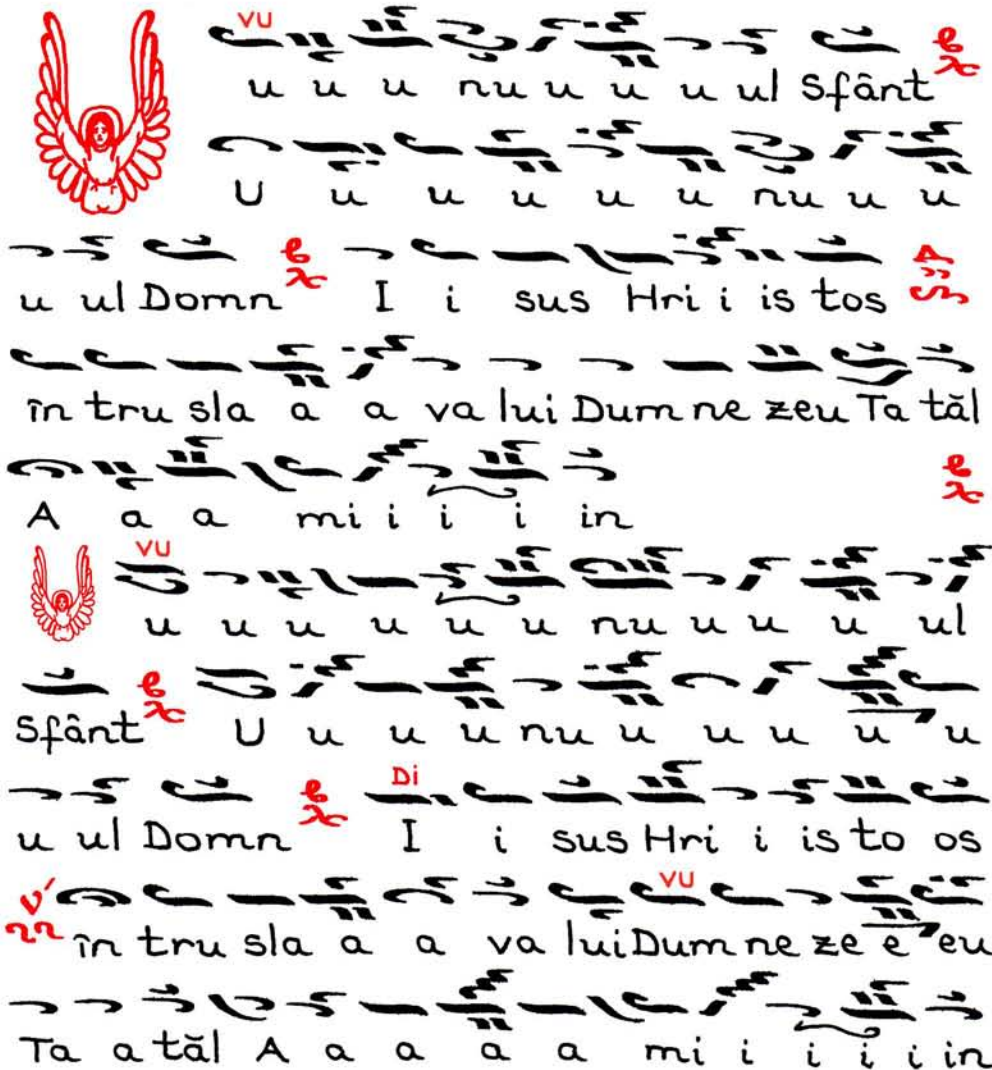 VU
u u u nu u u u ul Sfânt
U u u u u u nu u u
u ul Domn I i sus Hri i is tos
în tru sla a a va lui Dum ne zeu Ta tăl
A a a mi i i i in
VU
u u u u u u nu u u u ul
Sfânt U u u u nu u u u u u
Di
u ul Domn I i sus Hri i is to os
VU
în tru sla a a va lui Dum ne ze e eu
Ta a tăl A a a a a mi i i i i in